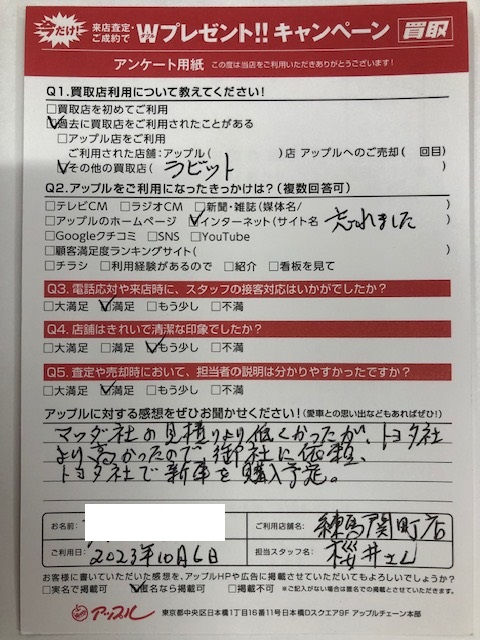 今だけ! 来店査定・ご成約で Wプレゼント!! キャンペーン 買取
アンケート用紙 この度は当店をご利用いただきありがとうございます!
Q1.買取店利用について教えてください!
□買取店を初めてご利用
☑過去に買取店をご利用されたことがある
□アップル店をご利用
ご利用された店舗:アップル( )店 アップルへのご売却( 回目)
☑その他の買取店( ラビット )
Q2.アップルをご利用になったきっかけは?(複数回答可)
□テレビCM □ラジオCM □新聞・雑誌(媒体名/ )
□アップルのホームページ ☑インターネット(サイト名 忘れました )
□Googleクチコミ □SNS □YouTube
□顧客満足度ランキングサイト( )
□チラシ □利用経験があるので □紹介 □看板を見て
Q3.電話応対や来店時に、スタッフの接客対応はいかがでしたか?
□大満足 ☑満足 □もう少し □不満
Q4.店舗はきれいで清潔な印象でしたか?
□大満足 □満足 ☑もう少し □不満
Q5.査定や売却時において、担当者の説明は分かりやすかったですか?
□大満足 ☑満足 □もう少し □不満
アップルに対する感想をぜひお聞かせください!(愛車との思い出などもあればぜひ!)
マツダ社の見積りより低くかったが、トヨタ社
より高かったので、御社に依頼。
トヨタ社で新車を購入予定。
お名前: ご利用店舗名: 練馬関町店
ご利用日: 2023年10月6日 担当スタッフ名: 桜井さん
お客様に書いていただいた感想を、アップルHPや広告に掲載させていただいてもよろしいでしょうか?
□実名で掲載可 ☑匿名なら掲載可 □掲載不可 ※ご記入がない場合は匿名での掲載とさせていただきます。
アップル 東京都中央区日本橋1丁目16番11号日本橋Dスクエア9F アップルチェーン本部